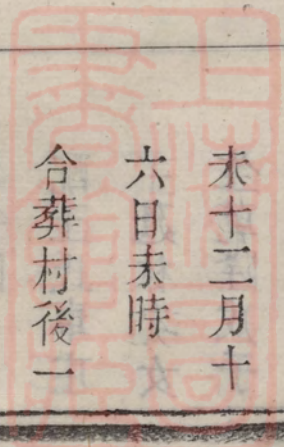 未十二月十
六日未時
合葬村後一